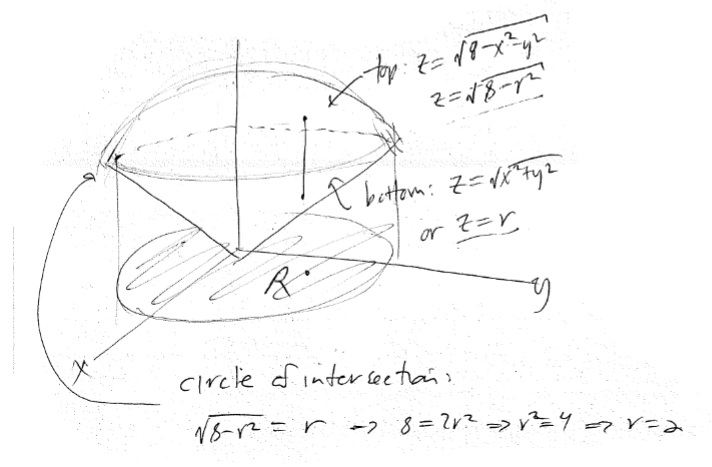 top: z = √8-x²-y²
z = √8-r²
bottom: z = √x²+y²
or z = r
R
y
x
circle of intersection:
√8-r² = r → 8 = 2r² ⇒ r² = 4 ⇒ r = 2